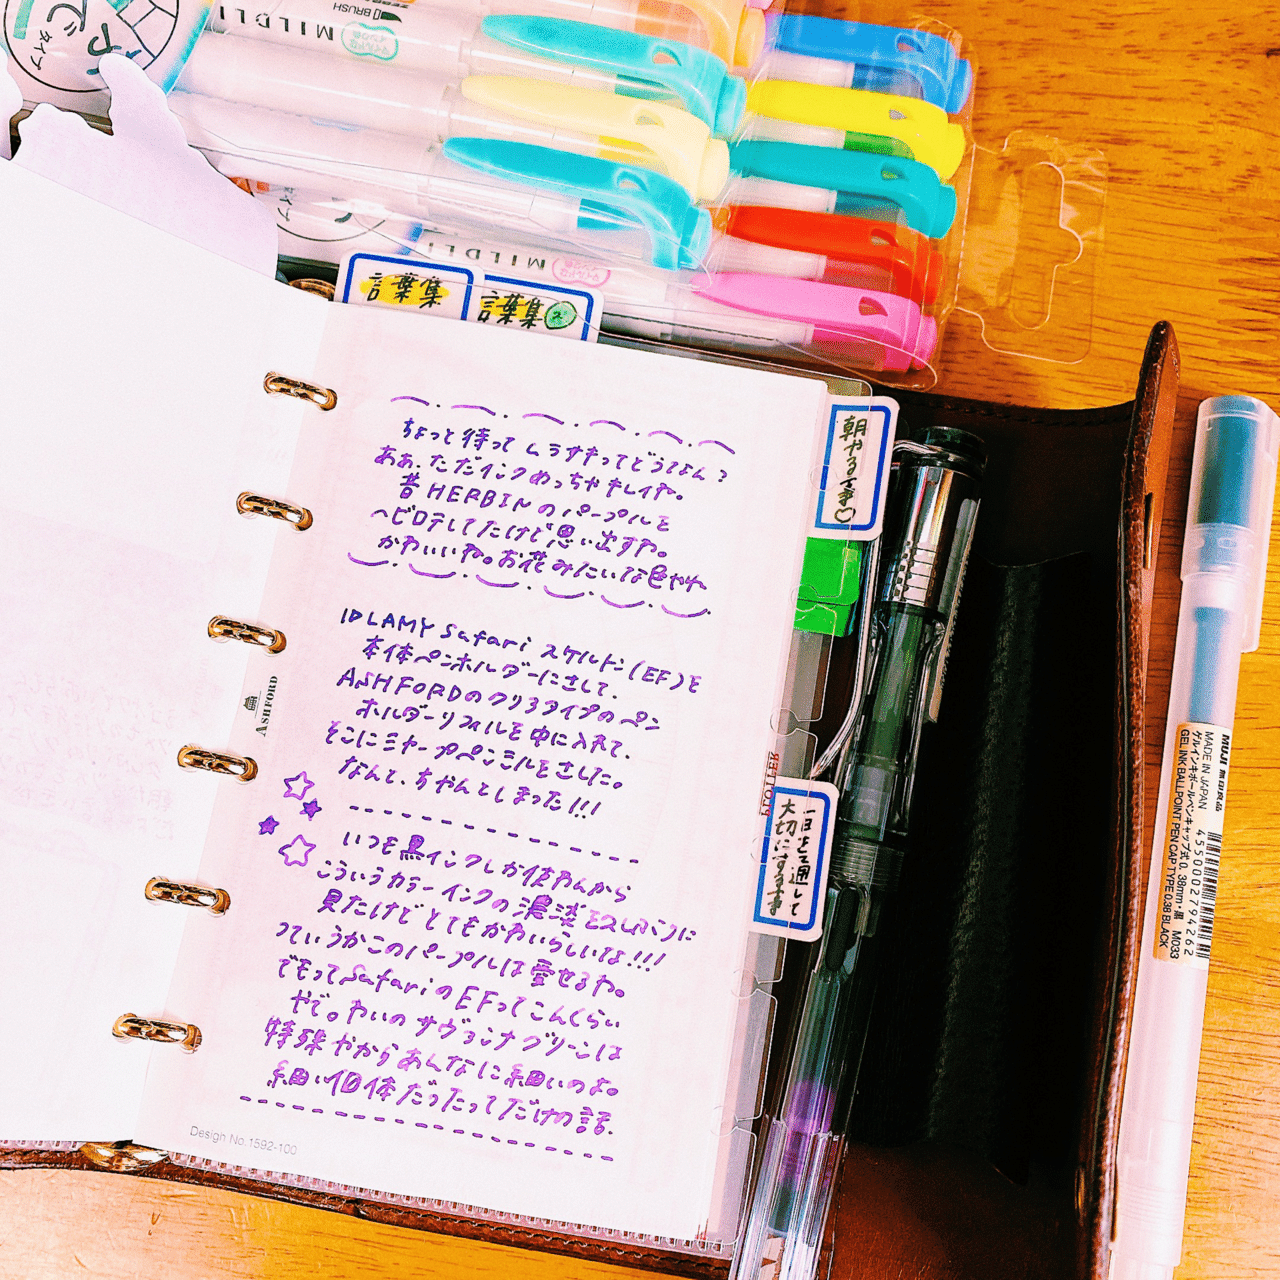 BRUSH
MILDLI
MILDLI
言葉集
言葉集②
朝やる事♡
ちょっと待って しうすきってどうよん?
ああ、ただインクめっちゃキレイや。
昔HERBINのパープルを
ヘビロテしてたけど思い出すわ。
かわいいね。お花みたいな色やね
旧LAMY Safari スケルトン(EF)を
本体ペンホルダーにさして、
ASHFORDのクリアタイプのペン
ホルダーリフィルを中に入れて、
そこにミヤープペンミルをさした。
なんと、ちゃんとしまった!!!
いつも黒インクしか使わんから
こういうカラーインクの濃淡を久しぶりに
見たけどとてもかわいらしいな!!!
っていうかこのパープルは愛せるわ。
でもってSafariのEFってこんくらい
やで。わいのサヴァンナグリーンは
特殊やからあんなに細いのよ。
細い個体だったってだけの話。
ASHFORD
Design No.1592-100
PROFILER
一日を通して
大切にする事
MUJI 無印良品
MADE IN JAPAN 4550002794262
ゲルインキボールペンキャップ式 0.38mm・黒 M033
GEL INK BALLPOINT PEN CAP TYPE 0.38 BLACK